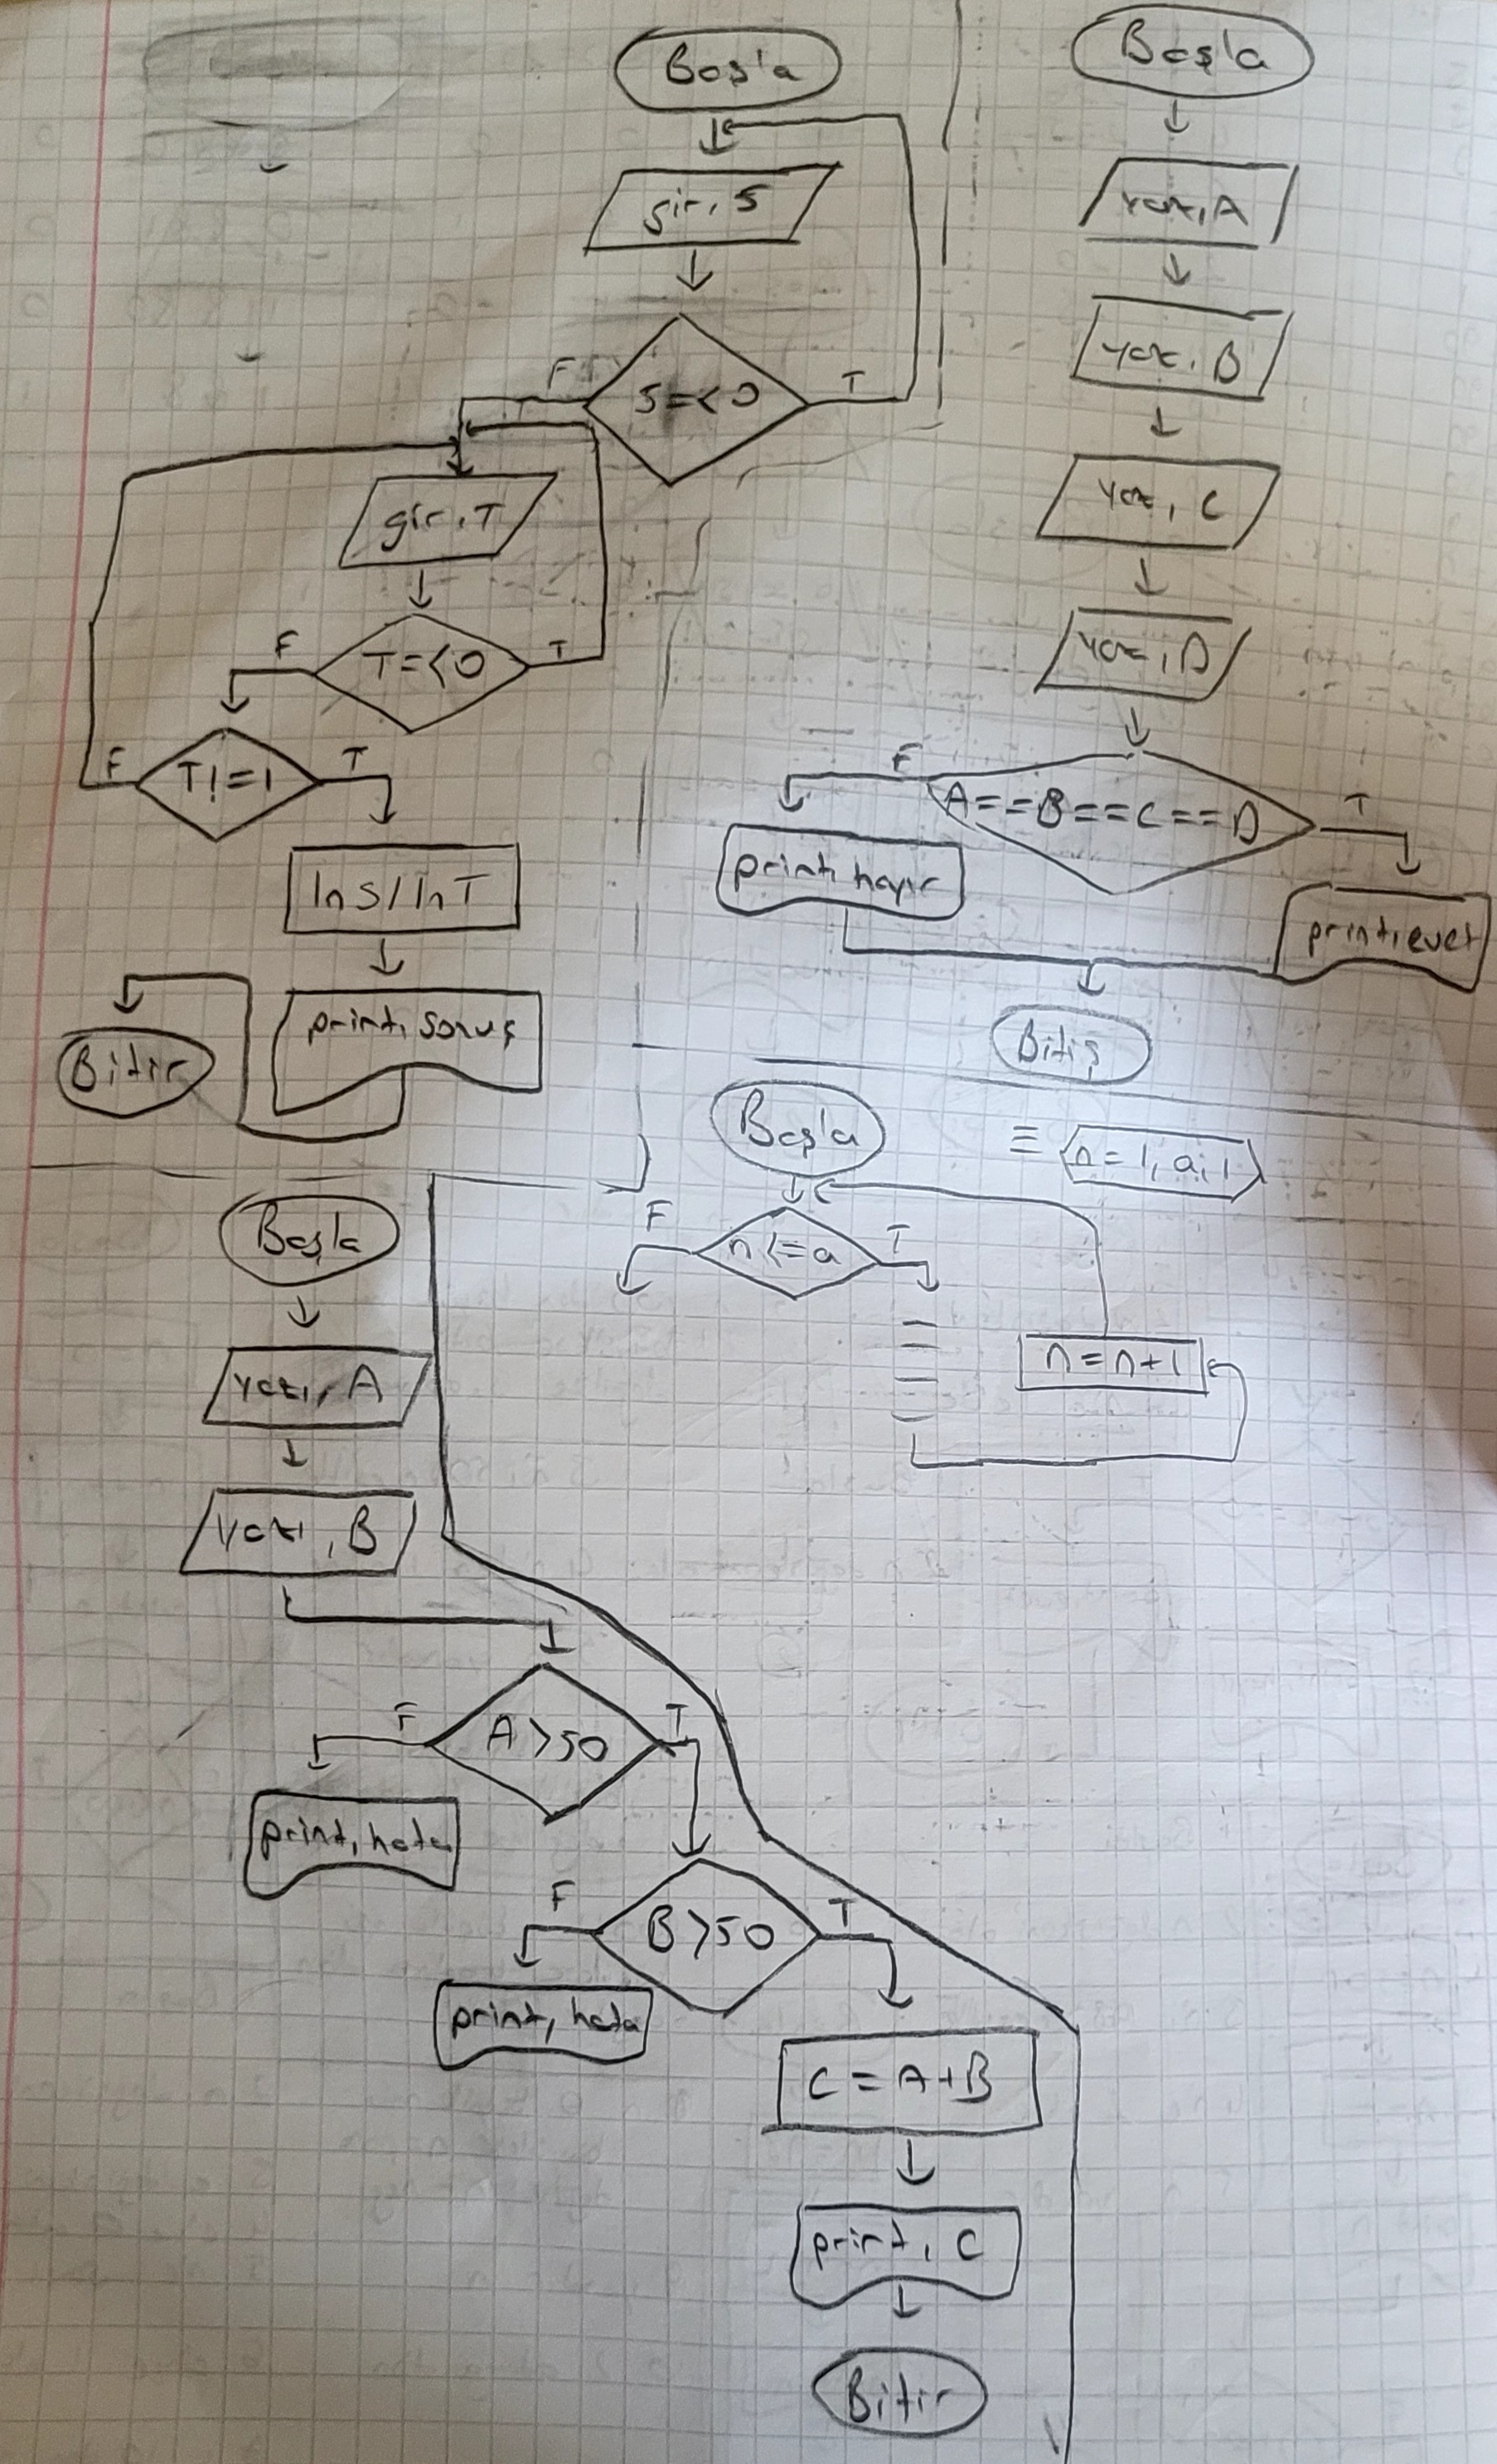 Başla
gir, S
S=<0
F
T
gir, T
T=<0
F
T
T!=1
F
T
ln S / ln T
print, sonuç
Bitir
Başla
yaz, A
yaz, B
yaz, C
yaz, D
A==B==C==D
F
T
print, hayır
print, evet
Bitiş
Başla
≡ n=1, a, 1
n<=a
F
T
n=n+1
Başla
yazı, A
yazı, B
A>50
F
T
print, hata
B>50
F
T
print, hata
C=A+B
print, C
Bitir